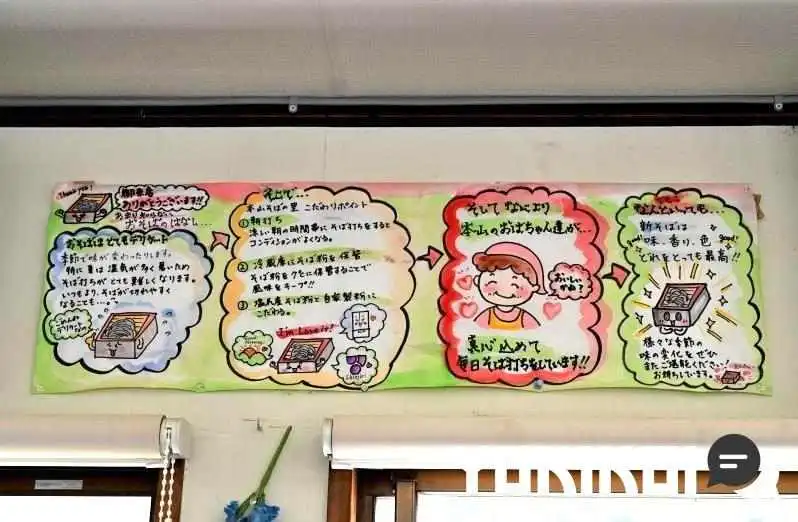 Thank you!
御来店
ありがとうございます!!
あまり知らない、
おそばのはなし…
おそばはとてもデリケート
季節で味が変わったりします。
特に夏は湿気が多く暑いため
そば打ちがとても難しくなります。
いつもより、そばが切れやすく
なることも…
そこで…
本山そばの里 こだわりポイント
① 朝打ち
涼しい朝の時間帯にそば打ちをすると
コンディションがよくなる。
② 冷蔵庫にそば粉を保管
そば粉を先に保管することで
風味をキープ!!
③ 塩尻産そば粉と自家製粉に
こだわる。
I'm Love it!
そして なにより
本山のおばちゃん達が…
おいしい
かね?
真心込めて
毎日そば打ちをしています!!
なんといっても…
新そばは
味、香り、色
どれをとっても最高!!
様々な季節の
味の変化をぜひ
またご堪能ください!
お待ちしています。